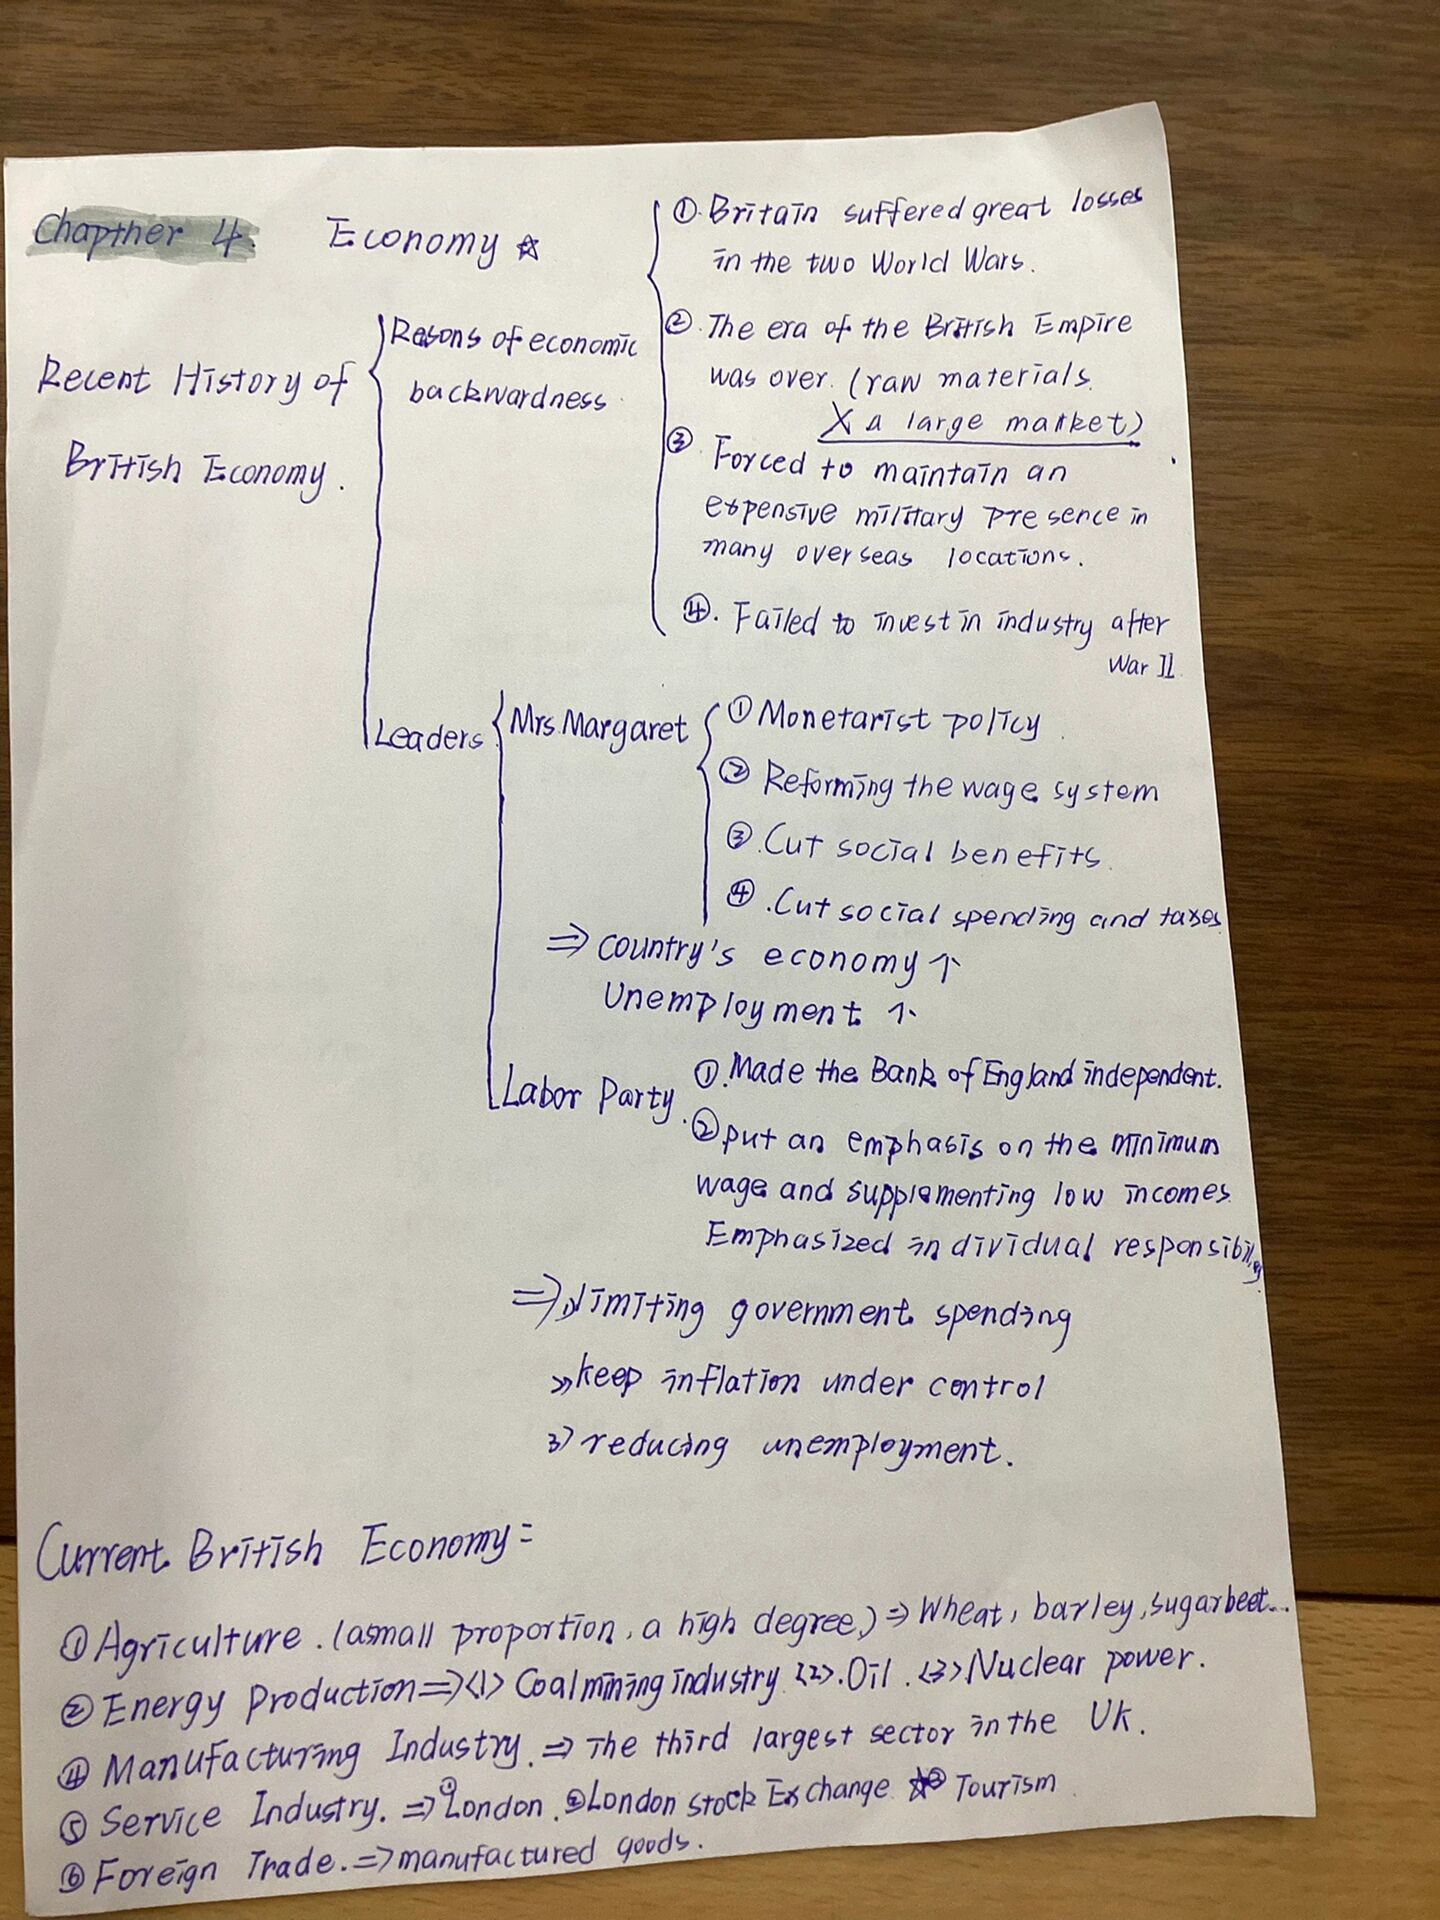 Chapther 4. Economy ☆
Recent History of
British Economy.
Resons of economic
backwardness.
①. Britain suffered great losses
in the two World Wars.
②. The era of the British Empire
was over. (raw materials.
X a large market)
③ Forced to maintain an
expensive military presence in
many overseas locations.
④. Failed to invest in industry after
War II
Leaders
Mrs. Margaret
① Monetarist policy.
② Reforming the wage system
③. Cut social benefits.
④. Cut social spending and taxes
⇒ country's economy ↑
Unemployment ↑
Labor Party.
①. Made the Bank of England independent.
② put an emphasis on the minimum
wage and supplementing low incomes
Emphasized individual responsibility
⇒ 1) limiting government spending
2) keep inflation under control
3) reducing unemployment.
Current British Economy:
① Agriculture. (a small proportion, a high degree) ⇒ Wheat, barley, sugarbeet...
② Energy Production ⇒ <1> Coalmining industry <2>. Oil. <3> Nuclear power.
④ Manufacturing Industry. ⇒ The third largest sector in the UK.
⑤ Service Industry. ⇒ ① London. ② London stock Exchange ☆③ Tourism
⑥ Foreign Trade. ⇒ manufactured goods.